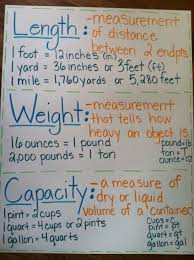 Length:-measurement
of distance
between 2 endpts.
1 foot = 12 inches (in)
1 yard = 36 inches or 3 feet (ft)
1 mile = 1,760 yards or 5,280 feet
Weight:-measurement
that tells how
heavy an object is.
16 ounces = 1 pound
2,000 pounds = 1 ton
pound = lb
ton = T
ounce = oz
Capacity:-a measure of
dry or liquid
volume of a container.
1 pint = 2 cups
1 quart = 4 cups or 2 pints
1 gallon = 4 quarts
cups = c
pint = pt
quart = qt
gallon = gal